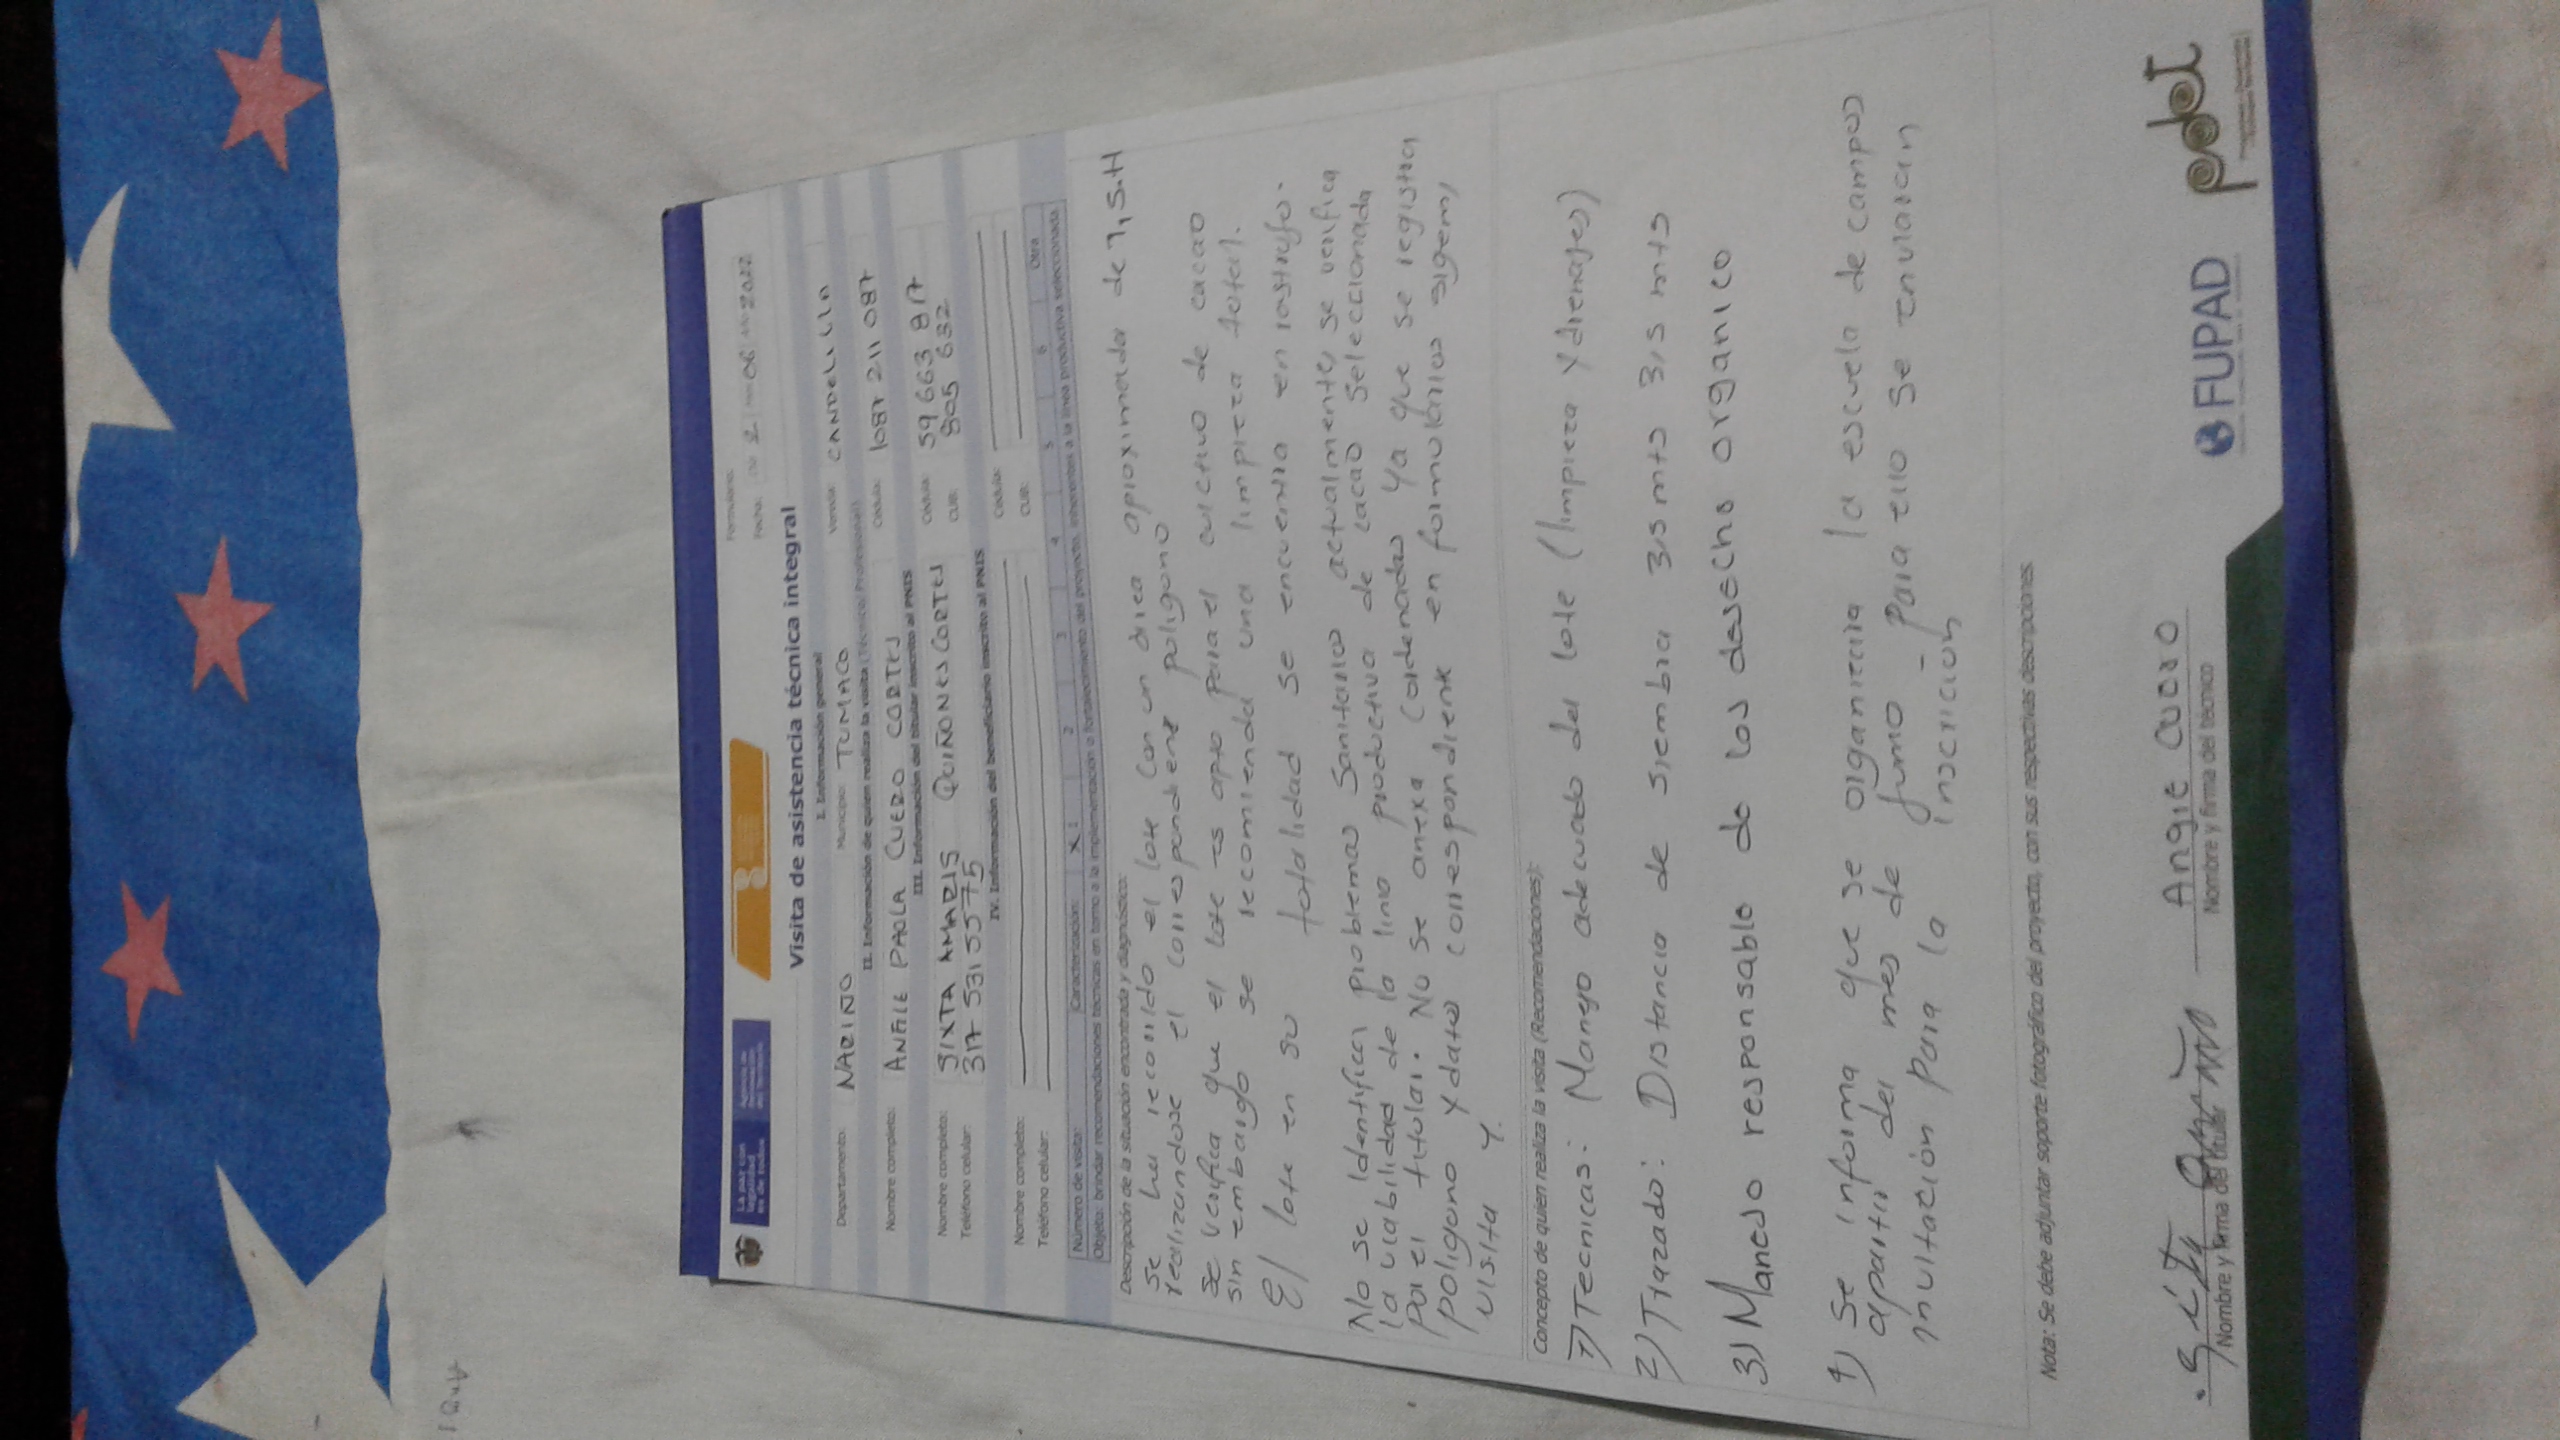 La paz con
legalidad
es de todos
Agencia de
Renovación
del Territorio
Formulario:
Fecha: 2 06 2022
Visita de asistencia técnica integral
I. Información general
Departamento: NARIÑO Municipio: TUMACO Vereda: CANDELILLA
II. Información de quien realiza la visita (Técnico/ Profesional)
Nombre completo: ANGIE PAOLA CUERO CORTES Cédula: 1087 211 087
III. Información del titular inscrito al PNIS
Nombre completo: SIXTA AMARIS QUIÑONES CORTES Cédula: 59 663 817
Teléfono celular: 317 531 55 75 CUB: 805 632
IV. Información del beneficiario inscrito al PNIS
Nombre completo: Cédula:
Teléfono celular: CUB:
Número de visita: Caracterización: X 1 2 3 4 5 6 Otra
Objeto: brindar recomendaciones técnicas en torno a la implementación o fortalecimiento del proyecto, inherentes a la línea productiva seleccionada
Descripción de la situación encontrada y diagnóstico:
Se ha recorrido el lote con un area aproximada de 1,5.H
realizandose el correspondiene poligono
Se verifica que el lote es apto para el cultivo de cacao
sin embargo se recomienda una limpieza total).
El lote en su totalidad se encuentra en rastrojo.
No se identifican problemas sanitario actualmentes se verifica
la viabilidad de la lina productiva de cacao Seleccionada
por el titular. No se anexa Cordenadas Ya que se registra
poligono Y datos correspondiente en formularios sigem,
visita 1.
Concepto de quien realiza la visita (Recomendaciones):
1) Tecnicas: Manejo adecuado del lote (limpieza Y drenajes)
2) Trazado: Distancia de siembra 3,5 mts 3,5 mts
3) Manejo responsable de los desecho organico
4) Se informa que se organizaria la escuela de campos
apartir del mes de junio - Para ello se enviaran
invitación para la inscrición
Nota: Se debe adjuntar soporte fotográfico del proyecto, con sus respectivas descripciones
Angie Cuero
Nombre y firma del titular Nombre y firma del técnico
FUPAD
pdet